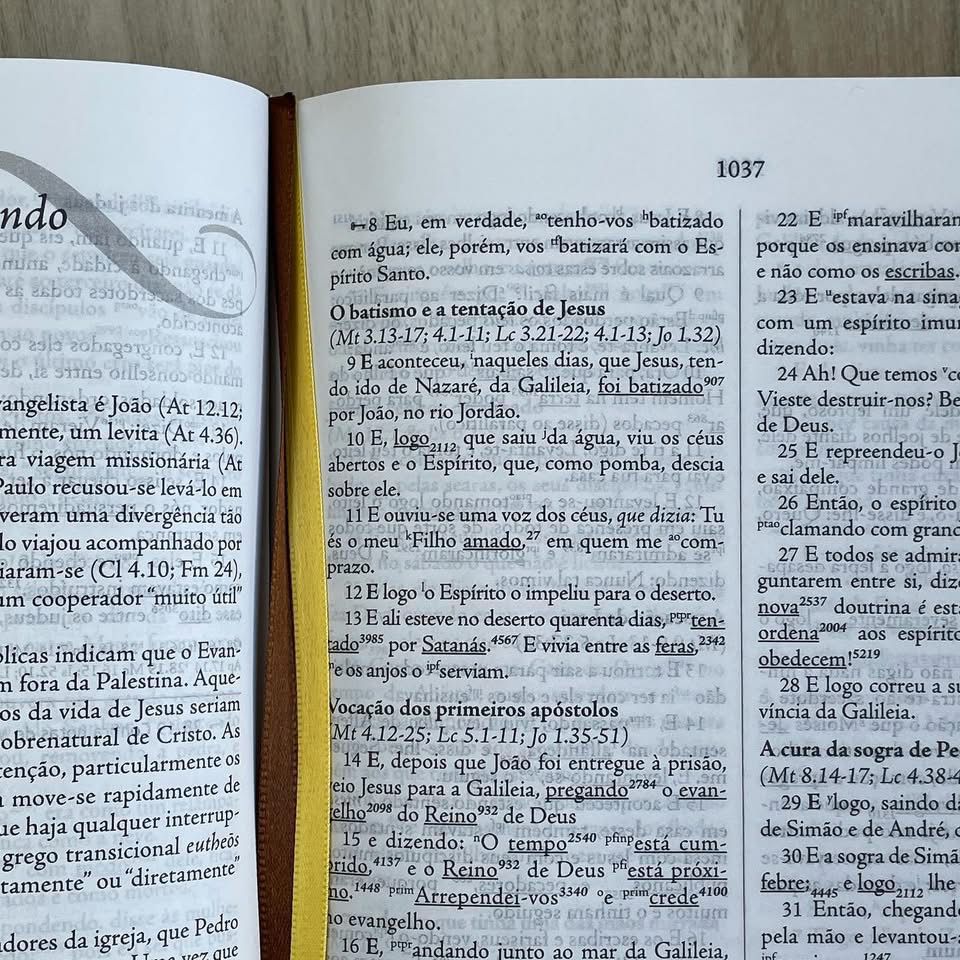 ndo
vangelista é João (At 12.12;
mente, um levita (At 4.36).
ra viagem missionária (At
Paulo recusou-se levá-lo em
veram uma divergência tão
lo viajou acompanhado por
iaram-se (Cl 4.10; Fm 24),
um cooperador “muito útil”
blicas indicam que o Evan-
m fora da Palestina. Aque-
os da vida de Jesus seriam
obrenatural de Cristo. As
tenção, particularmente os
a move-se rapidamente de
ue haja qualquer interrup-
grego transicional eutheōs
tamente” ou “diretamente”
dores da igreja, que Pedro
Uma vez que
1037
8 Eu, em verdade, ao tenho-vos h batizado
com água; ele, porém, vos tf batizará com o Es-
pírito Santo.
O batismo e a tentação de Jesus
(Mt 3.13-17; 4.1-11; Lc 3.21-22; 4.1-13; Jo 1.32)
9 E aconteceu, i naqueles dias, que Jesus, ten-
do ido de Nazaré, da Galileia, foi batizado 907
por João, no rio Jordão.
10 E, logo 2112 que saiu j da água, viu os céus
abertos e o Espírito, que, como pomba, descia
sobre ele.
11 E ouviu-se uma voz dos céus, que dizia: Tu
és o meu k Filho amado, 27 em quem me ao com-
prazo.
12 E logo l o Espírito o impeliu para o deserto.
13 E ali esteve no deserto quarenta dias, ptpr ten-
tado 3985 por Satanás. 4567 E vivia entre as feras, 2342
e os anjos o ipf serviam.
Vocação dos primeiros apóstolos
Mt 4.12-25; Lc 5.1-11; Jo 1.35-51)
14 E, depois que João foi entregue à prisão,
veio Jesus para a Galileia, pregando 2784 o evan-
elho 2098 do Reino 932 de Deus
15 e dizendo: n O tempo 2540 pfinp está cum-
rido, 4137 e o Reino 932 de Deus pfi está próxi-
no. 1448 prim Arrependei-vos 3340 o e prim crede 4100
no evangelho.
16 E, ptpr andando junto ao mar da Galileia,
22 E ipf maravilharan
porque os ensinava con
e não como os escribas.
23 E u estava na sina
com um espírito imun
dizendo:
24 Ah! Que temos v co
Vieste destruir-nos? Be
de Deus.
25 E repreendeu-o J
e sai dele.
26 Então, o espírito
ptao clamando com granc
27 E todos se admira
guntarem entre si, dize
nova 2537 doutrina é esta
ordena 2004 aos espírito
obedecem! 5219
28 E logo correu a su
víncia da Galileia.
A cura da sogra de Pe
(Mt 8.14-17; Lc 4.38-4
29 E y logo, saindo da
de Simão e de André, c
30 E a sogra de Simã
febre; 4445 e logo 2112 lhe
31 Então, chegando
pela mão e levantou-a
ipf 1247